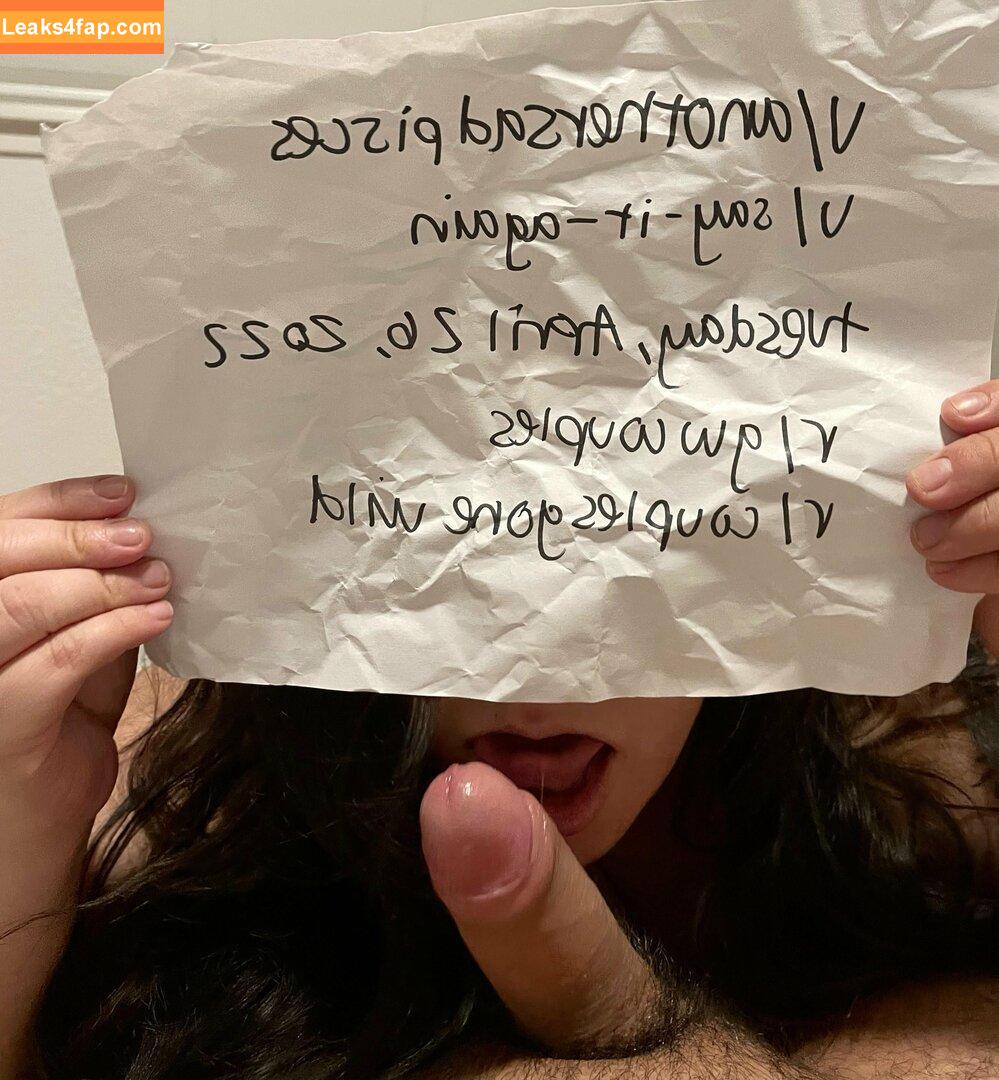 Leaks4fap.com
u/anothersadpisces
u/say-it-again
tuesday, April 26, 2022
r/gwcouples
r/couplesgonewild